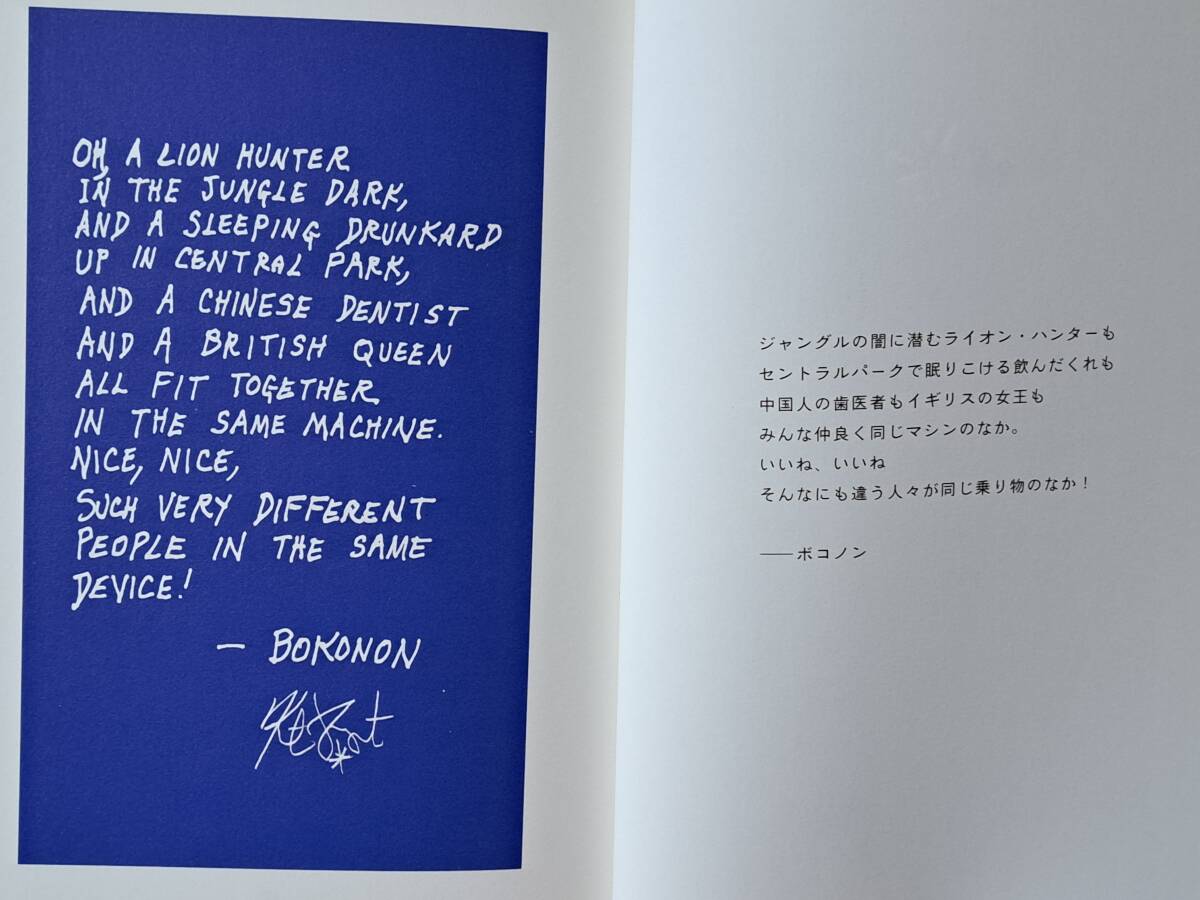 OH, A LION HUNTER
IN THE JUNGLE DARK,
AND A SLEEPING DRUNKARD
UP IN CENTRAL PARK,
AND A CHINESE DENTIST
AND A BRITISH QUEEN
ALL FIT TOGETHER
IN THE SAME MACHINE.
NICE, NICE,
SUCH VERY DIFFERENT
PEOPLE IN THE SAME
DEVICE!
— BOKONON
ジャングルの闇に潜むライオン・ハンターも
セントラルパークで眠りこける飲んだくれも
中国人の歯医者もイギリスの女王も
みんな仲良く同じマシンのなか。
いいね、いいね
そんなにも違う人々が同じ乗り物のなか！
——ボコノン